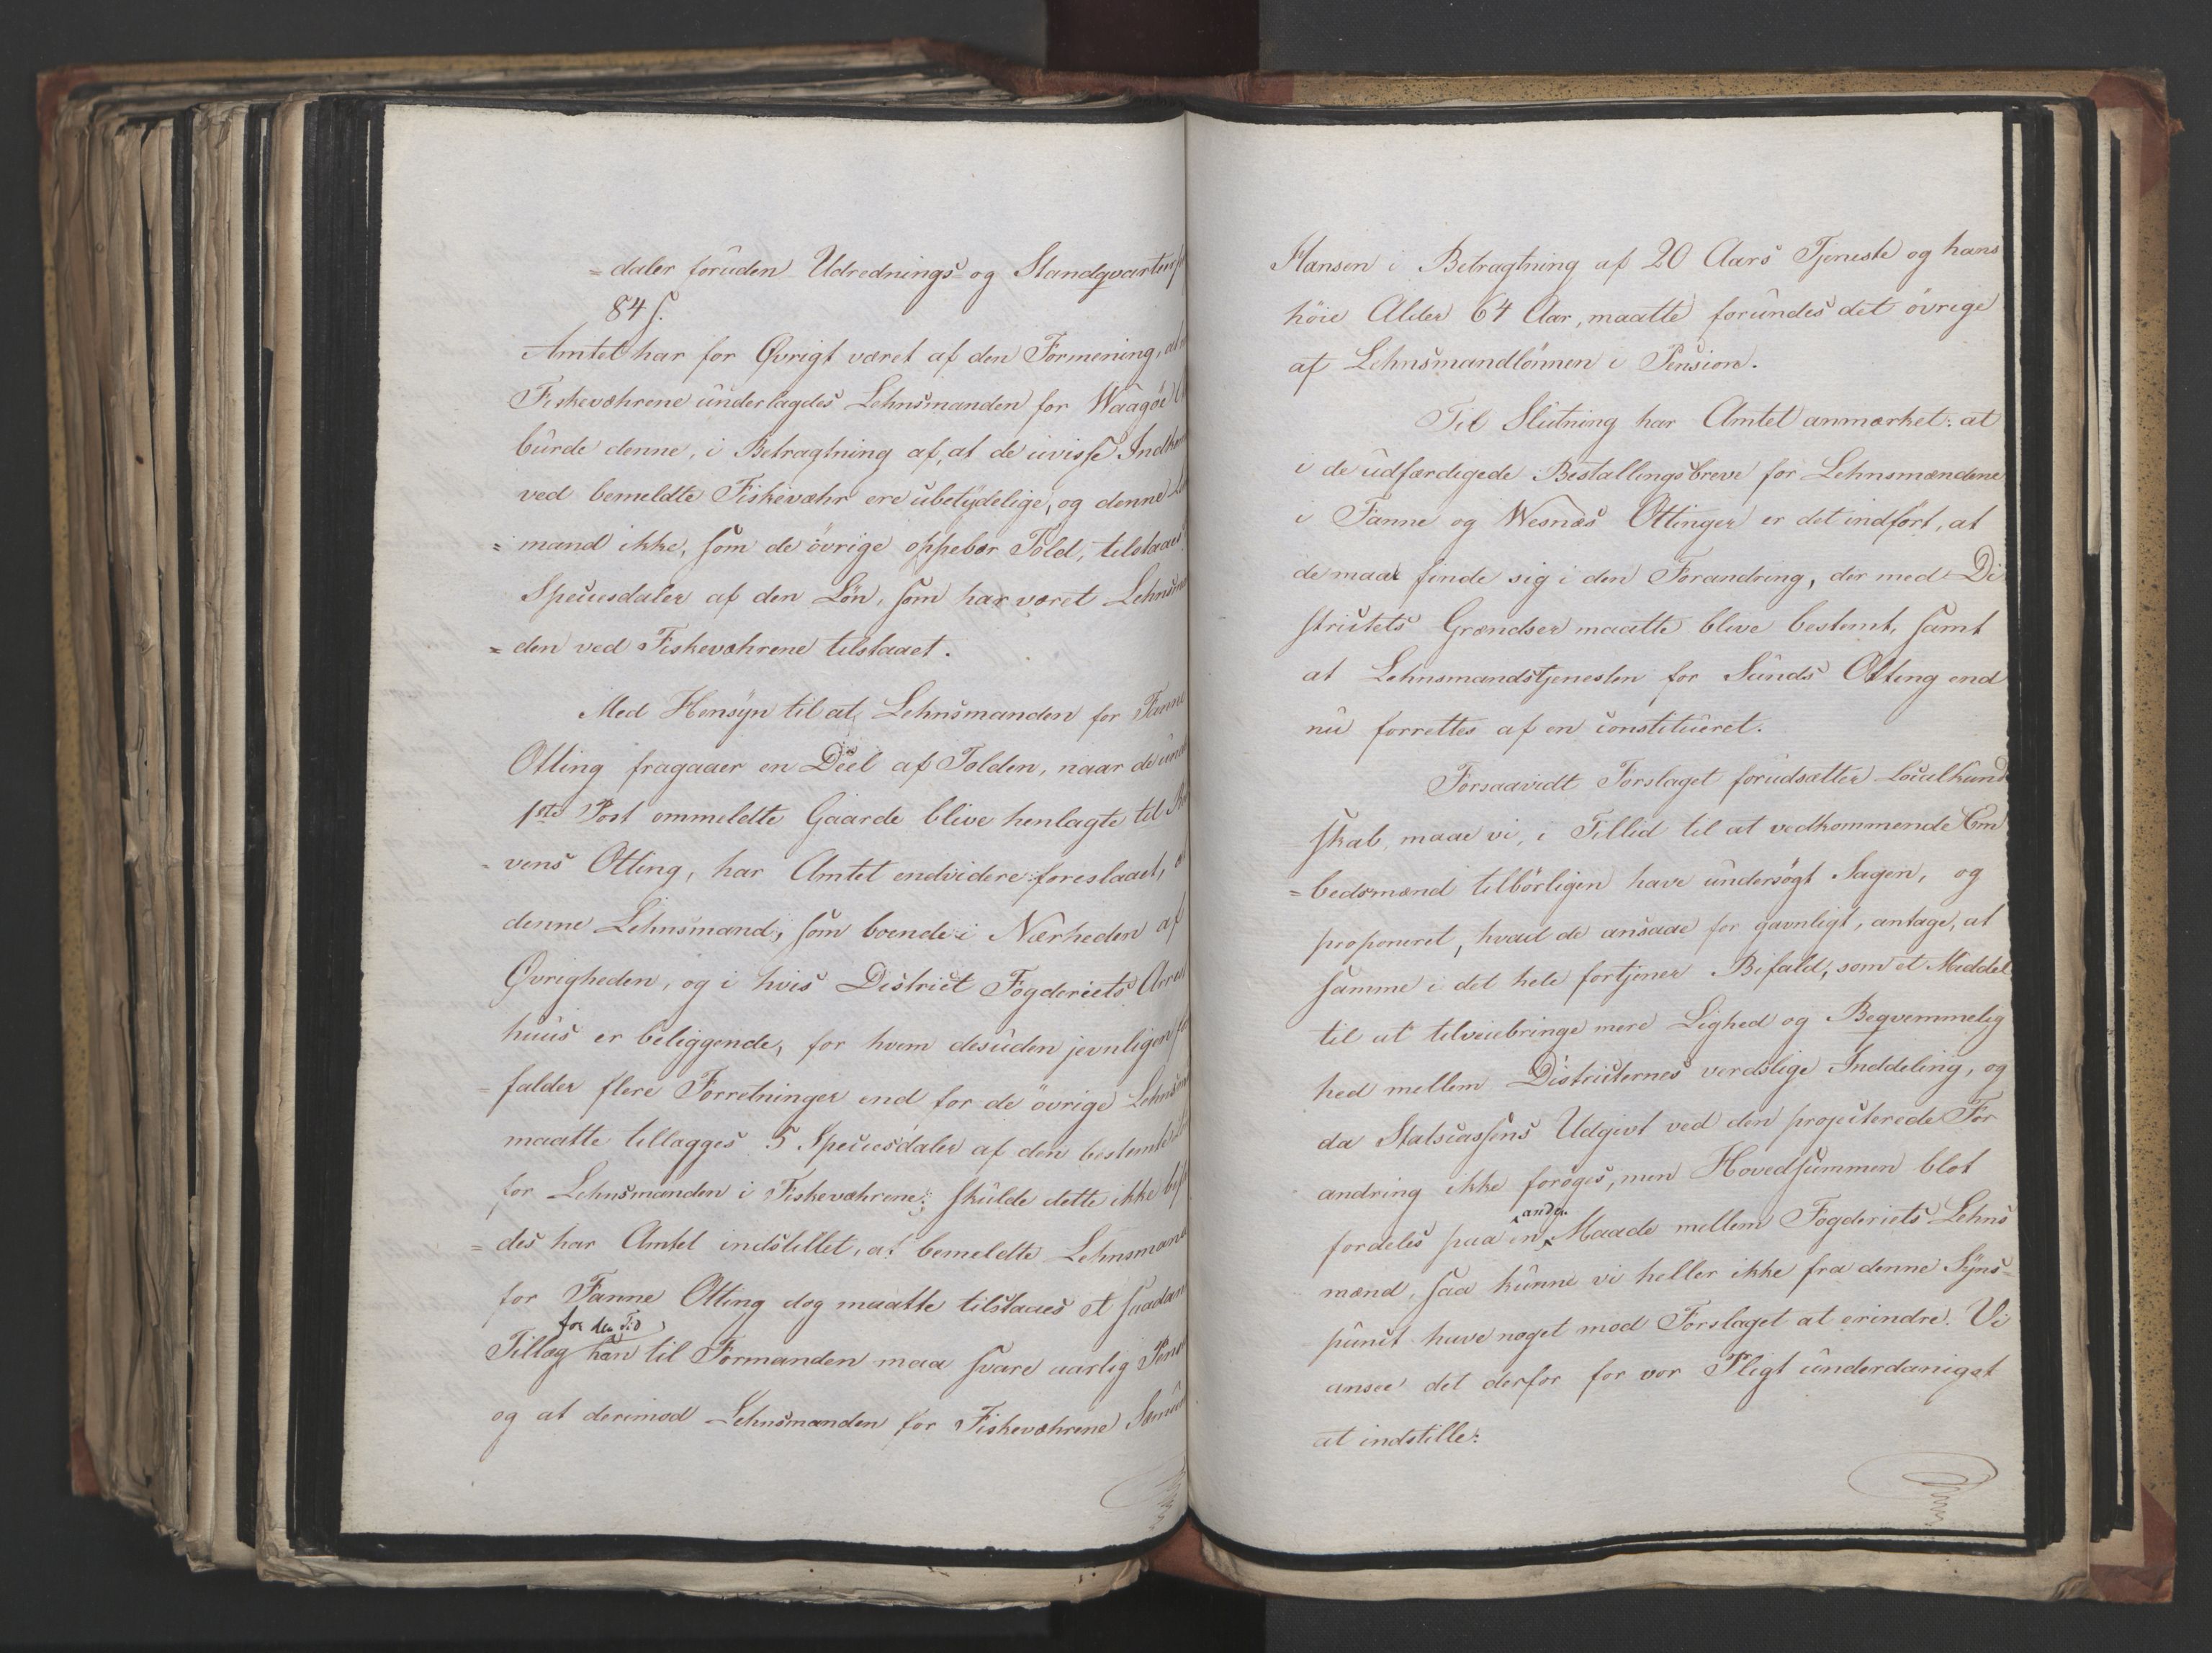 = daler foruden Udrednings og Standqvarteers
84 s.
Amtet har for Øvrigt været af den Formening, at
Fiskeværhrene underlagdes Lehnsmanden for Waagöe
burde denne, i Betragtning af, at de uvisse
ved bemeldte Fiskevæhr ere ubetydelige, og denne
= mand ikke, som de övrige oppebær Told, tilstaaes
Speciesdaler af den Lön, som har været
= den ved Fiskevæhrene tilstaaet.
Med Hensyn til at Lehnsmanden for Fanne
Otting fragaaer en Deel af Tolden, naar de
1ste Post ommeldte Gaarde blive henlagte til
= vens Otting, har Amtet endvidere foreslaaet,
denne Lehnsmand, som boende i Nærheden af
Øvrigheden, og i hvis District Fogderiets
huus er beliggende, for hvem desuden jevnligen
= falder flere Forretninger end for de övrige
maatte tillægges 5 Speciesdaler af den bestemte
for Lehnsmanden i Fiskevæhrene; skulde dette ikke
= des har Amtet indstillet, at bemeldte Lehnsmand
for Fanne Otting dog maatte tilstaaes et saadan
for den Tid
Tillæg han til Formanden maa svare aarlig
og at derimod Lehnsmanden for Fiskevæhrene
Hansen i Betragtning af 20 Aars Tjeneste og hans
höie Alder 64 Aar, maatte forundes det övrige
af Lehnsmandlönnen i Pension.
Til Slutning har Amtet anmærket: at
i de udfærdegede Bestallingsbreve for Lehnsmændene
i Fanne og Wesnæs Ottinger er det indfört, at
de maae finde sig i den Forandring, der med Di
strictets Grændser maatte blive bestemt, samt
at Lehnsmandstjenesten for Sunds Otting end
nu forrettes af en constitueret.
Forsaavidt Forslaget forudsætter Localkund
skab, maae vi, i Tillid til at vedkommende Em
= bedsmænd tilbörligen have undersögt Sagen, og
proponeret, hvad de ansaae for gavnligt, antage, at
samme i det hele fortjener Bifald, som et Middel
til at tilveiebringe mere Lighed og Beqvemmelig
hed mellem Districternes verdslige Inddeling, og
da Statscassens Udgivt ved den projecterede For
andring ikke foröges, men Hovedsummen blot
anden
fordeles paa en Maade mellem Fogderiets Lehns
mænd, saa kunne vi heller ikke fra denne Syns=
punct have noget mod Forslaget at erindre. Vi
ansee det derfor for vor Pligt underdanigst
at indstille: